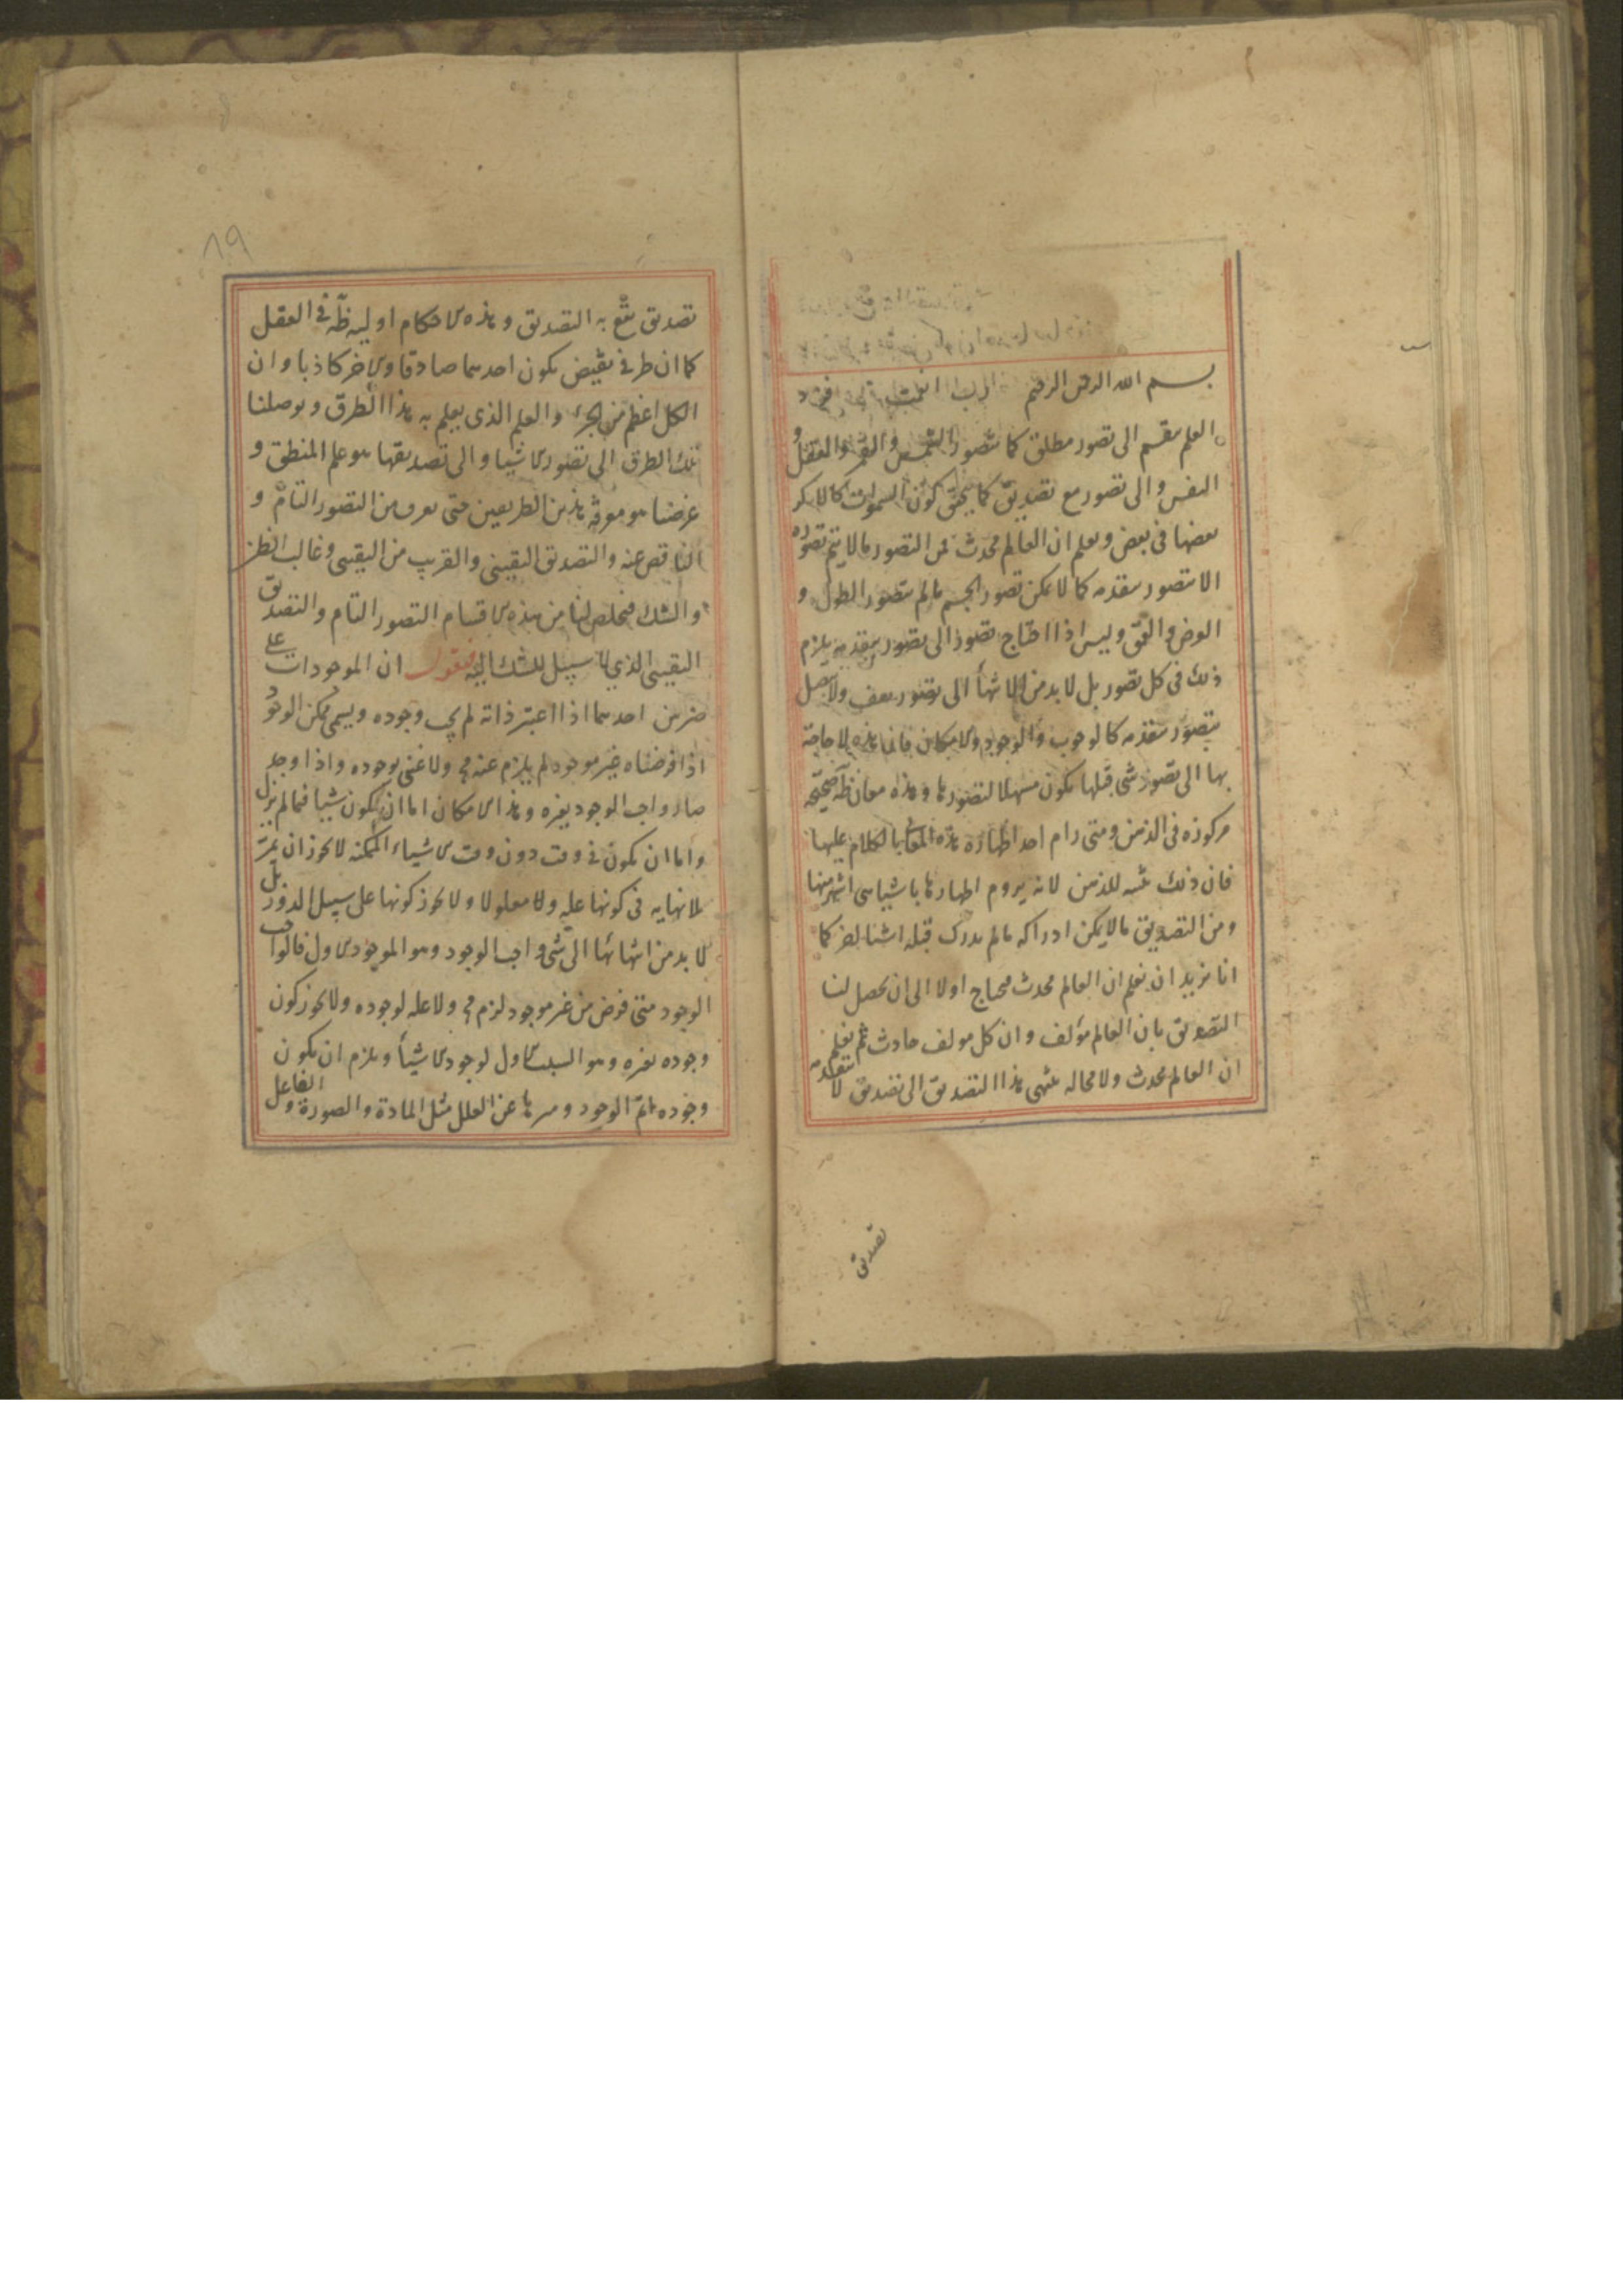 بسم الله الرحمن الرحيم رب
العلم ينقسم الى تصور مطلق كما يتصور الشمس والقمر والعقل و
النفس والى تصور مع تصديق كما يتحقق كون السموات كالاكر
بعضها فى بعض ويعلم ان العالم محدث فمن التصور مالا يتم تصوره
الا بتصور يتقدمه كما لا يمكن تصور الجسم مالم يتصور الطول و
العرض والعمق وليس اذا احتاج تصور الى تصور يتقدمه يلزم
ذلك فى كل تصور بل لا بد من الانتهاء الى تصور يقف ولا يتصل
بتصور يتقدمه كالوجوب والوجود والامكان فان هذه لا حاجة
بها الى تصور شى قبلها يكون مشتملا لتصورها وهذه معان ظاهرة صحيحة
مركوزه فى الذهن ومتى رام احد اظهار هذه المعانى بالكلام عليها
فان ذلك تنبيه للذهن لانه يروم اظهارها باشياء هى اشهر منها
ومن التصديق مالا يمكن ادراكه مالم يدرك قبله اشيا اخر كما
انا نريد ان نعلم ان العالم محدث فيحتاج اولا الى ان يحصل لنا
التصديق بان العالم مؤلف وان كل مولف حادث ثم نعلم
ان العالم محدث ولا محاله ينتهى هذا التصديق الى تصديق لا يتقدمه
تصديق
٨٩
تصديق يقع به التصديق وهذه الاحكام اوليه ظاهرة فى العقل
كما ان طرفى نقيض يكون احدهما صادقا والاخر كاذبا وان
الكل اعظم من الجزء والعلم الذى يعلم به هذا الطرق ويوصلنا
تلك الطرق الى تصور الاشيا والى تصديقها هو علم المنطق و
غرضنا هو معرفة هذين الطريقين حتى نعرف من التصور التام و
الناقص عنه والتصديق اليقينى والقريب من اليقينى وغالب الظن
والشك فيخلص لنا من هذه الاقسام التصور التام والتصديق
اليقينى الذى لا سبيل للشك اليه فنقول ان الموجودات على
ضربين احدهما اذا اعتبر ذاته لم يجب وجوده ويسمى ممكن الوجود
اذا فرضناه غير موجود لم يلزم عنه مح ولا غنى بوجوده واذا وجد
صار واجب الوجود بغيره وهذا الامكان اما ان يكون شيئا فيما لم يزل
واما ان يكون فى وقت دون وقت الاشياء الممكنه لا يجوز ان تمر
بلا نهايه فى كونها عله ولا معلولا ولا يجوز كونها على سبيل الدور بل
لا بد من انتهائها الى شى واجب الوجود وهو الموجود الاول فالواجب
الوجود متى فرض من غير موجود لزم مح ولا عله لوجوده ولا يجوز كون
وجوده بغيره وهو السبب الاول لوجود الاشياء ويلزم ان يكون
وجوده اتم الوجود ومنزها عن العلل مثل المادة والصورة والفاعل